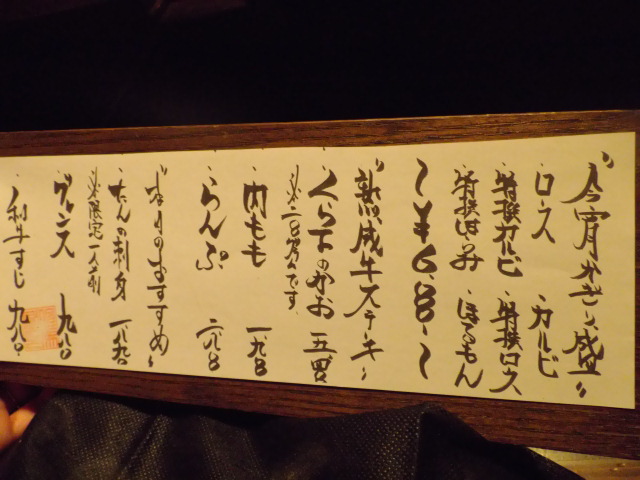 "今宵かぎり盛"
・ロース ・カルビ
・特撰カルビ ・特撰ロース
・特撰はらみ ・ほるもん
~¥6.8.~
"熟成牛ステーキ"
・くら下のかお 五.四〇
※二〇〇gです。
・内もも 一.九八〇
・らんぷ 二.八〇
"本日のおすすめ"
・たんの刺身 一.八九〇
※限定一人前
・ゲンス 九八〇
・和牛すじ 九八〇